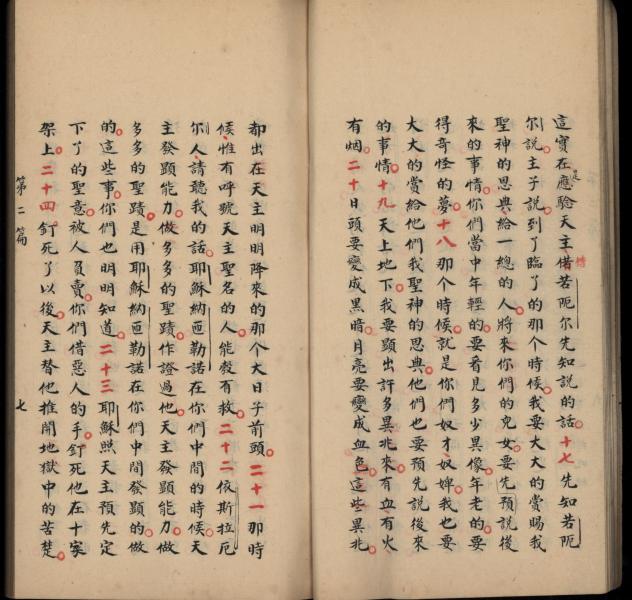 這寔在應驗天主借若阨尔先知說的話十七先知若阨
尔說主子說到了臨了的那个時候我要大大的賞賜我
聖神的恩典給一總的人將來你們的兒女要先預說後
來的事情你們當中年輕的要看見多少異像年老的要
得奇怪的夢十八那个時候就是你們奴才奴婢我也要
大大的賞給他們我聖神的恩典他們也要預先說後來
的事情十九天上地下我要顯出許多異兆來有血有火
有烟二十日頭要變成黑暗月亮要變成血色這些異兆
都出在天主明明降來的那个大日子前頭二十一那時
候惟有呼號天主聖名的人能彀有救二十二依斯拉厄
尔人請聽我的話耶穌納匝勒諾在你們中間的時候天
主發顯能力做多多的聖蹟作證過他天主發顯能力做
多多的聖蹟是用耶穌納匝勒諾在你們中間發顯的做
的這些事你們也明明知道二十三耶穌照天主預先定
下了的聖意被人負賣你們借惡人的手釘死他在十字
架上二十四釘死了以後天主替他推開地獄中的苦楚
第二篇 七